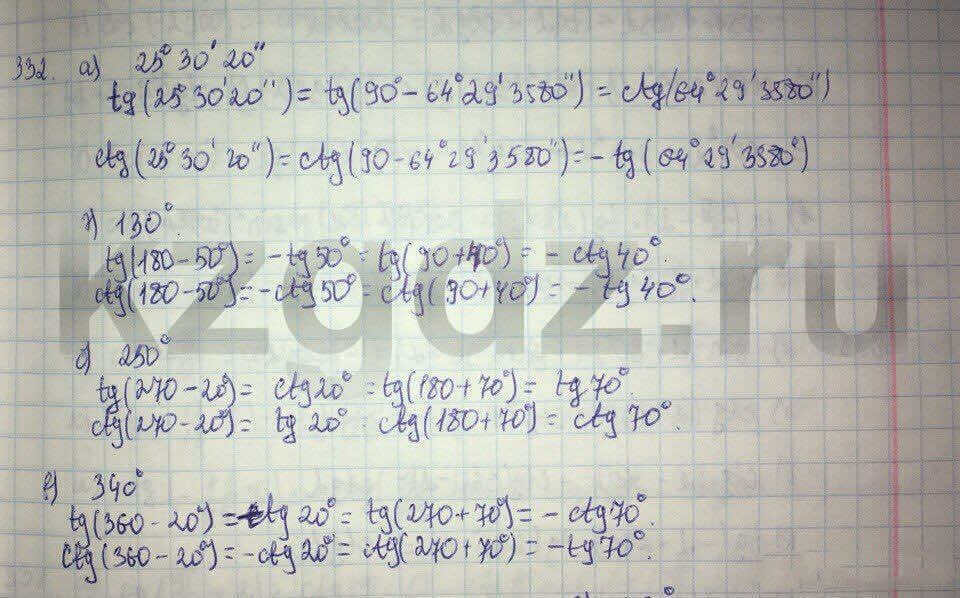 332. а) 25° 30' 20''
tg(25° 30' 20'') = tg(90° - 64° 29' 3580'') = ctg(64° 29' 3580'')
ctg(25° 30' 20'') = ctg(90 - 64° 29' 3580'') = - tg(64° 29' 3580°)
г) 130°.
tg(180 - 50°) = - tg 50° = tg(90 + 40°) = - ctg 40°.
ctg(180 - 50°) = - ctg 50° = ctg(90 + 40°) = - tg 40°.
б) 250°
tg(270 - 20°) = ctg 20° = tg(180 + 70°) = tg 70°.
ctg(270 - 20°) = tg 20° = ctg(180 + 70°) = ctg 70°.
в) 340°
tg(360 - 20°) = - tg 20° = tg(270 + 70°) = - ctg 70°.
ctg(360 - 20°) = - ctg 20° = ctg(270 + 70°) = - tg 70°.
kzgdz.ru